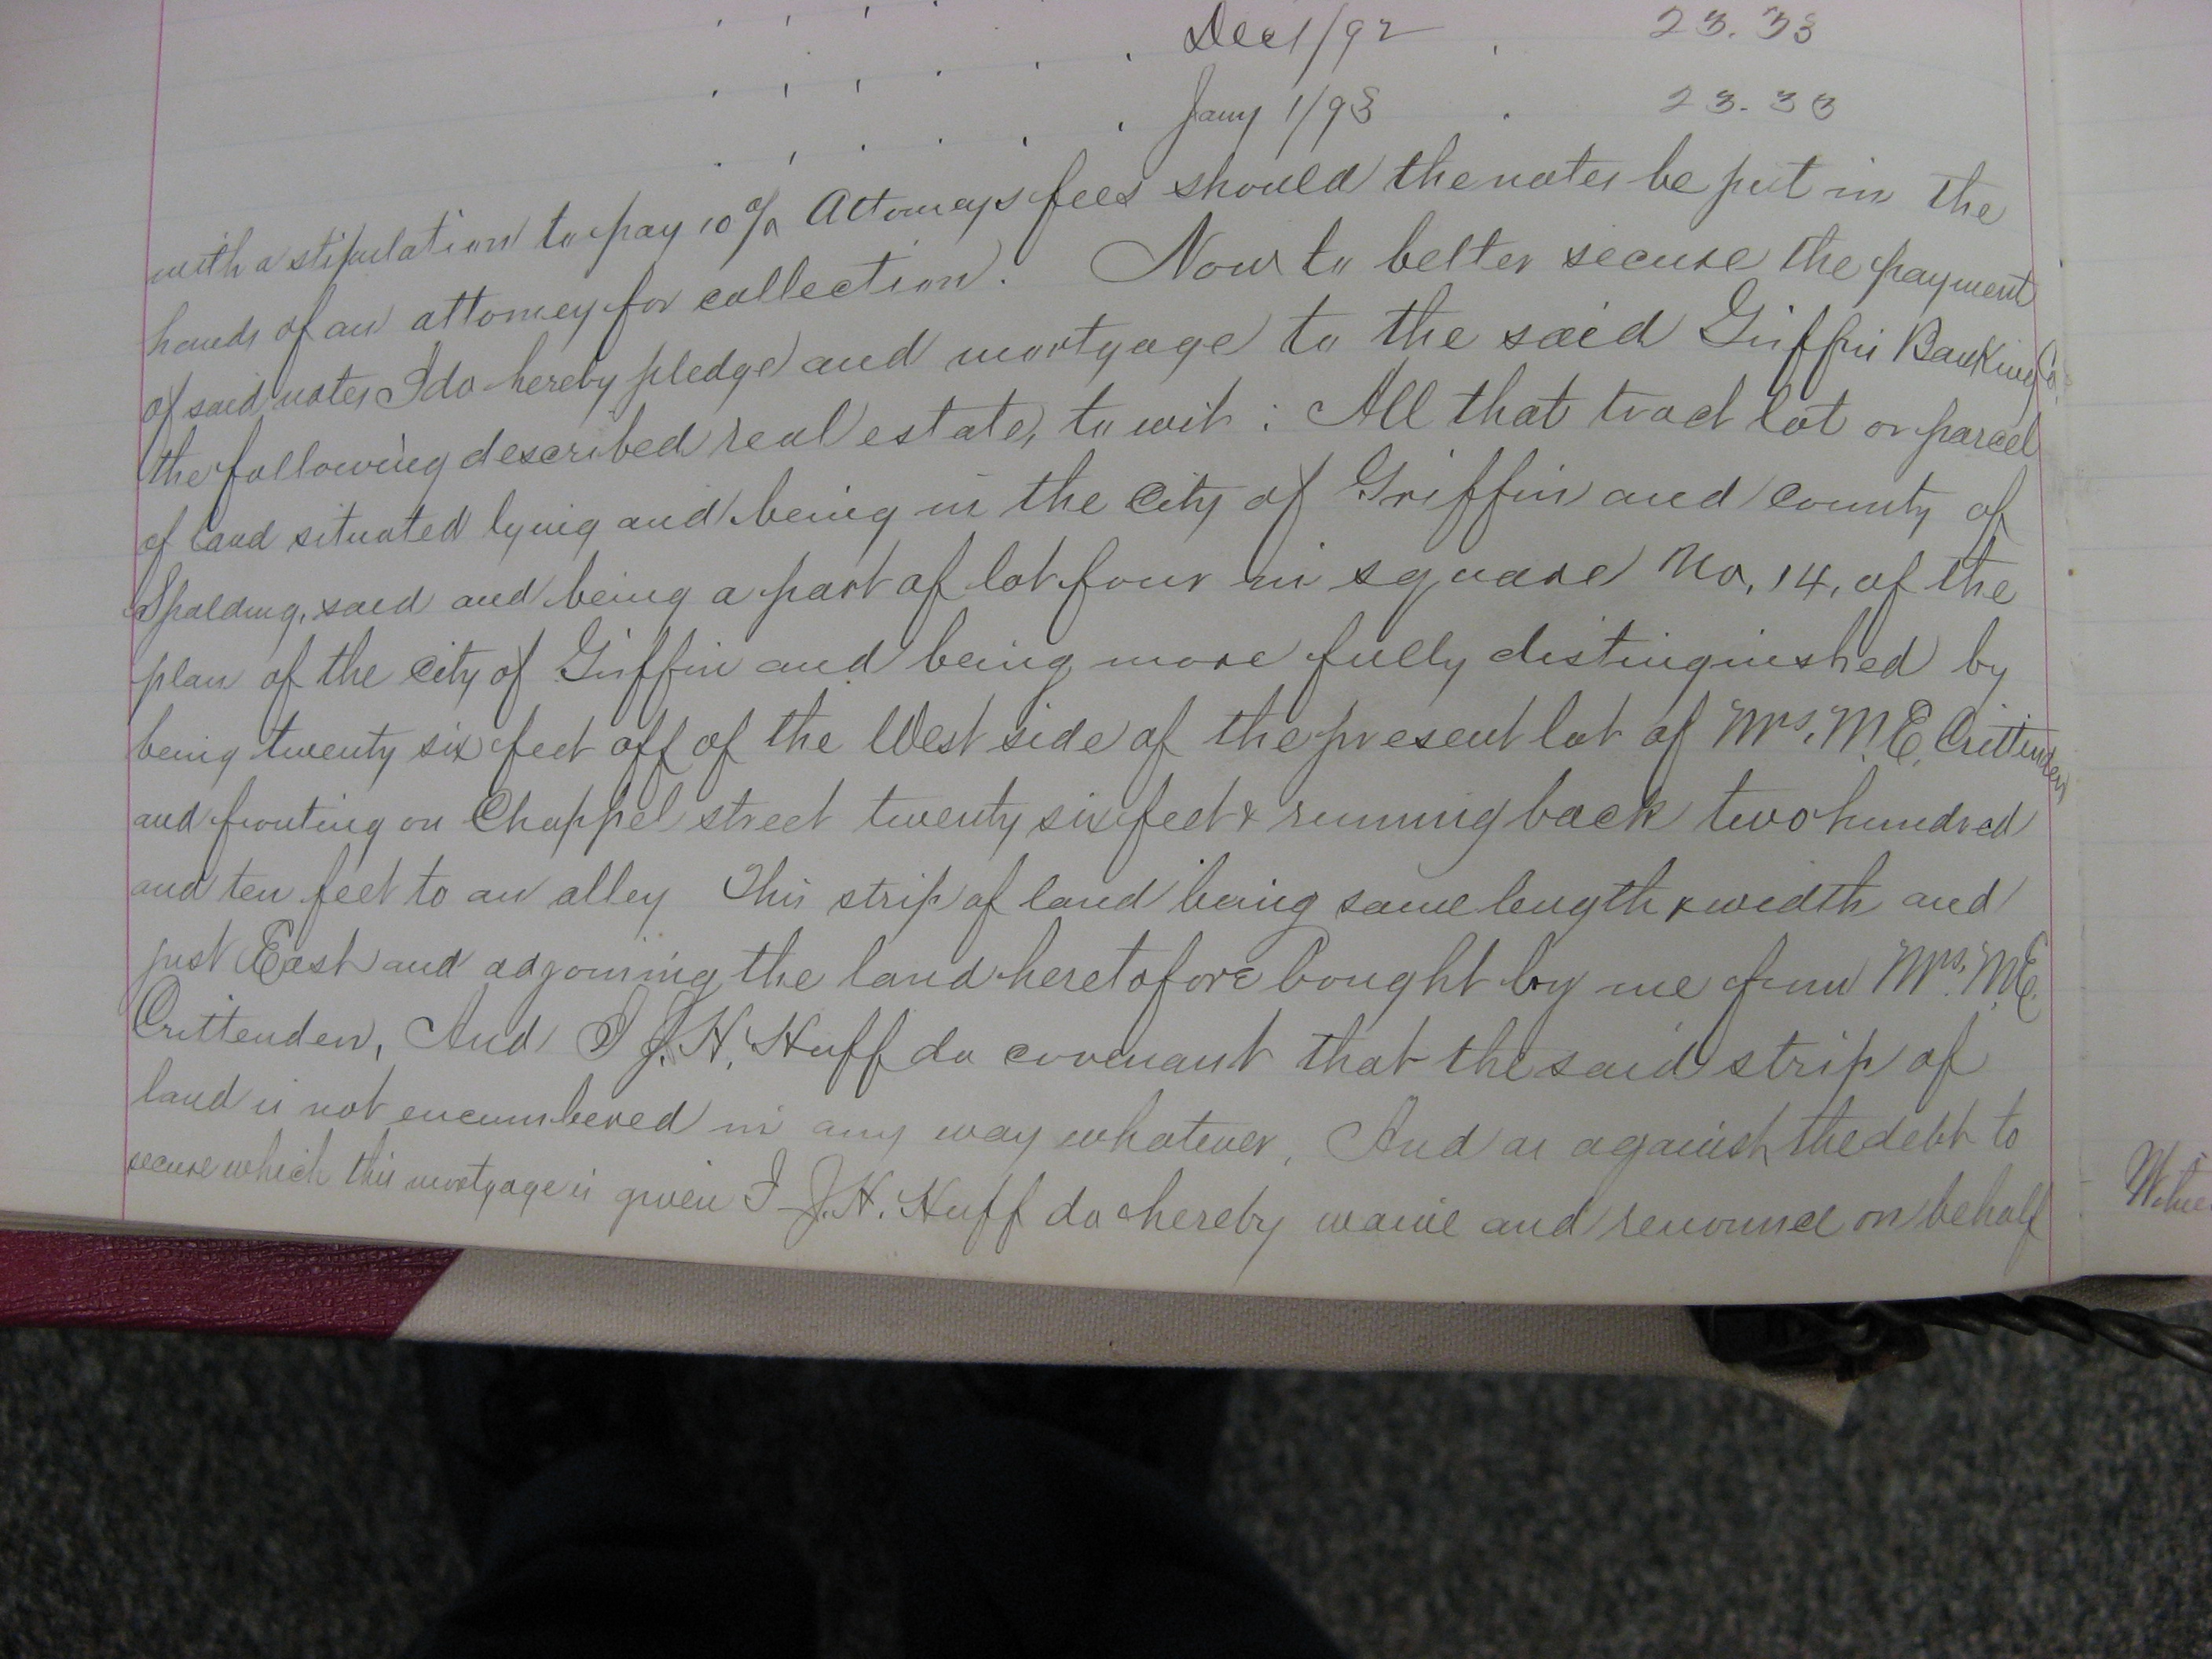 Dec 1/92 23.33
Jany 1/93 23.33
with a stipulation to pay 10% Attorneys fees should the notes be put in the
hands of an attorney for collection. Now to better secure the payment
of said notes I do hereby pledge and mortgage to the said Griffin Banking Co.
the following described real estate, to wit: All that tract lot or parcel
of land situated lying and being in the City of Griffin and county of
Spalding, said and being a part of lot four in square No. 14, of the
plan of the city of Griffin and being more fully distinguished by
being twenty six feet off of the West side of the present lot of Mrs. M.E. Crittenden
and fronting on Chappel street twenty six feet & running back two hundred
and ten feet to an alley This strip of land being same length & width and
just East and adjoining the land heretofore bought by me from Mrs. M.E.
Crittenden, And I J.H. Huff do covenant that the said strip of
land is not encumbered in any way whatever, And as against the debt to
secure which this mortgage is given I J.H. Huff do hereby waive and renounce on behalf